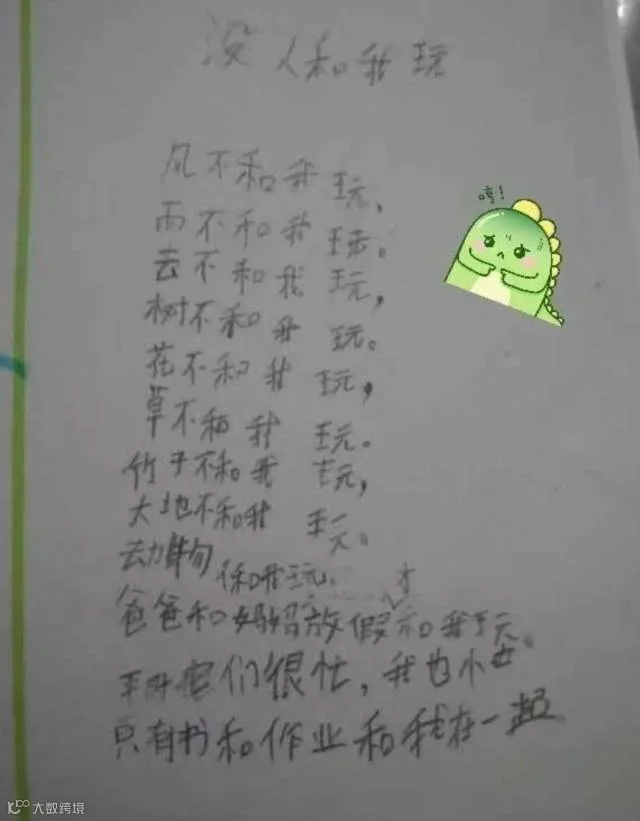 没人和我玩
风不和我玩,
哼!
雨不和我玩。
云不和我玩,
树不和我玩。
花不和我玩,
草不和我玩。
竹子不和我玩,
大地不和我玩。
动物不和我玩。
爸爸和妈妈放假才和我玩。
平时他们很忙,我也忙
只有书和作业和我在一起
大数跨境